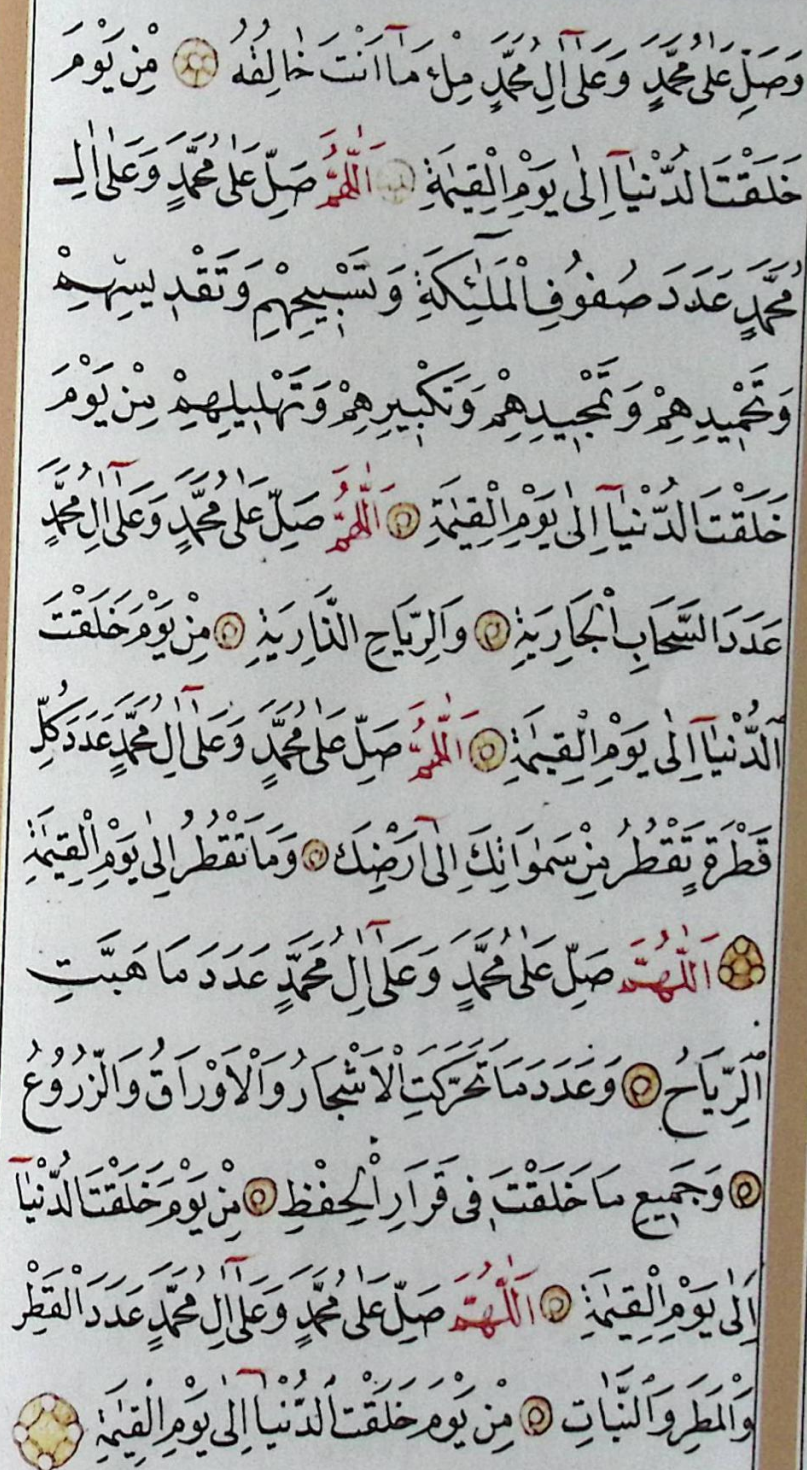 وَصَلِّ عَلٰى مُحَمَّدٍ وَعَلٰٓى اٰلِ مُحَمَّدٍ مِلْءَ مَآ اَنْتَ خَالِقُهُ مِنْ يَوْمَ
خَلَقْتَ الدُّنْيَآ اِلٰى يَوْمِ الْقِيٰمَةِ اَللّٰهُمَّ صَلِّ عَلٰى مُحَمَّدٍ وَعَلٰى اٰلِ
مُحَمَّدٍ عَدَدَ صُفُوفِ الْمَلٰٓئِكَةِ وَتَسْبِيحِهِمْ وَتَقْدِيسِهِمْ
وَتَحْمِيدِهِمْ وَتَمْجِيدِهِمْ وَتَكْبِيرِهِمْ وَتَهْلِيلِهِمْ مِنْ يَوْمَ
خَلَقْتَ الدُّنْيَآ اِلٰى يَوْمِ الْقِيٰمَةِ اَللّٰهُمَّ صَلِّ عَلٰى مُحَمَّدٍ وَعَلٰٓى اٰلِ مُحَمَّدٍ
عَدَدَ السَّحَابِ الْجَارِيَةِ وَالرِّيَاحِ الذَّارِيَةِ مِنْ يَوْمَ خَلَقْتَ
الدُّنْيَآ اِلٰى يَوْمِ الْقِيٰمَةِ اَللّٰهُمَّ صَلِّ عَلٰى مُحَمَّدٍ وَعَلٰٓى اٰلِ مُحَمَّدٍ عَدَدَ كُلِّ
قَطْرَةٍ تَقْطُرُ مِنْ سَمٰوَاتِكَ اِلٰٓى اَرْضِكَ وَمَا تَقْطُرُ اِلٰى يَوْمِ الْقِيٰمَةِ
اَللّٰهُمَّ صَلِّ عَلٰى مُحَمَّدٍ وَعَلٰٓى اٰلِ مُحَمَّدٍ عَدَدَ مَا هَبَّتِ
الرِّيَاحُ وَعَدَدَ مَا تَحَرَّكَتِ الْاَشْجَارُ وَالْاَوْرَاقُ وَالزُّرُوعُ
وَجَمِيعِ مَا خَلَقْتَ فِى قَرَارِ الْحِفْظِ مِنْ يَوْمَ خَلَقْتَ الدُّنْيَآ
اِلٰى يَوْمِ الْقِيٰمَةِ اَللّٰهُمَّ صَلِّ عَلٰى مُحَمَّدٍ وَعَلٰٓى اٰلِ مُحَمَّدٍ عَدَدَ الْقَطْرِ
وَالْمَطَرِ وَالنَّبَاتِ مِنْ يَوْمَ خَلَقْتَ الدُّنْيَآ اِلٰى يَوْمِ الْقِيٰمَةِ